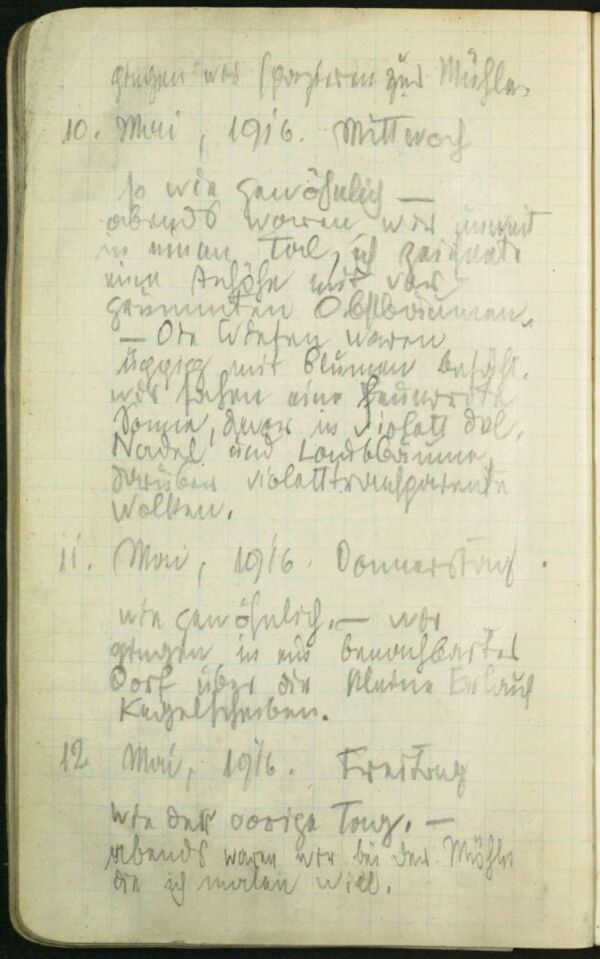 gingen wir spazieren zur Mühle.
10. Mai, 1916. Mittwoch
so wie gewöhnlich —
abends waren wir unweit
in einem Tal, ich zeichnete
eine Anhöhe mit vier
Obstbäumen.
— Die Wiesen waren
üppig mit Blumen besäht.
wir sahen eine feuerrote
Sonne, davor in violett dkl.
Nadel und Laubbäume,
darüber violetttransparente
Wolken.
11. Mai, 1916. Donnerstag.
wie gewöhnlich. — wir
gingen in ein benachbartes
Dorf über die kleine Erlauf
Kegelscheiben.
12 Mai, 1916. Freitag
wie der vorige Tag. —
abends waren wir bei der Mühle
die ich malen will.